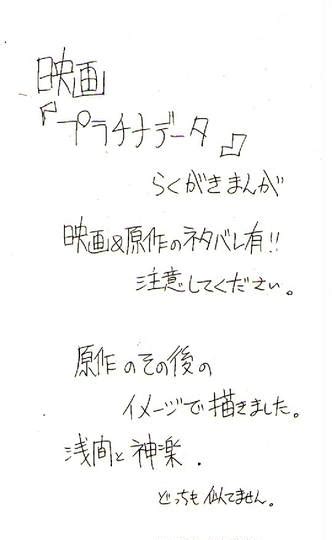 映画
『プラチナデータ』
らくがきまんが
映画&原作のネタバレ有!!
注意してください。
原作のその後の
イメージで描きました。
浅間と神楽.
どっちも似てません。